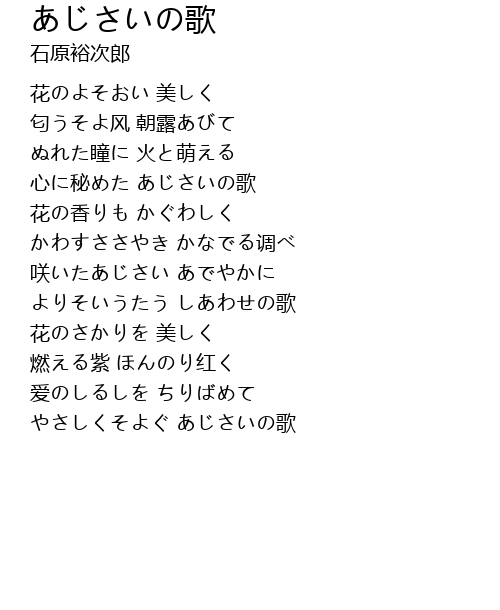 あじさいの歌
石原裕次郎
花のよそおい 美しく
匂うそよ风 朝露あびて
ぬれた瞳に 火と萌える
心に秘めた あじさいの歌
花の香りも かぐわしく
かわすささやき かなでる调べ
咲いたあじさい あでやかに
よりそいうたう しあわせの歌
花のさかりを 美しく
燃える紫 ほんのり红く
爱のしるしを ちりばめて
やさしくそよぐ あじさいの歌